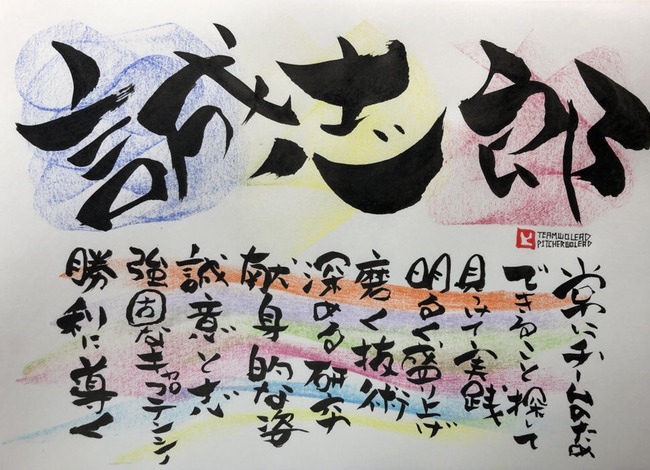 誠志郎
TEAMWOLEAD
PITCHERWOLEAD
常にチームのため
できること探して
見つけて実践
明るく盛り上げ
磨く技術
深める研究
献身的な姿
誠意と志
強固なキャプテンシー
勝利に導く